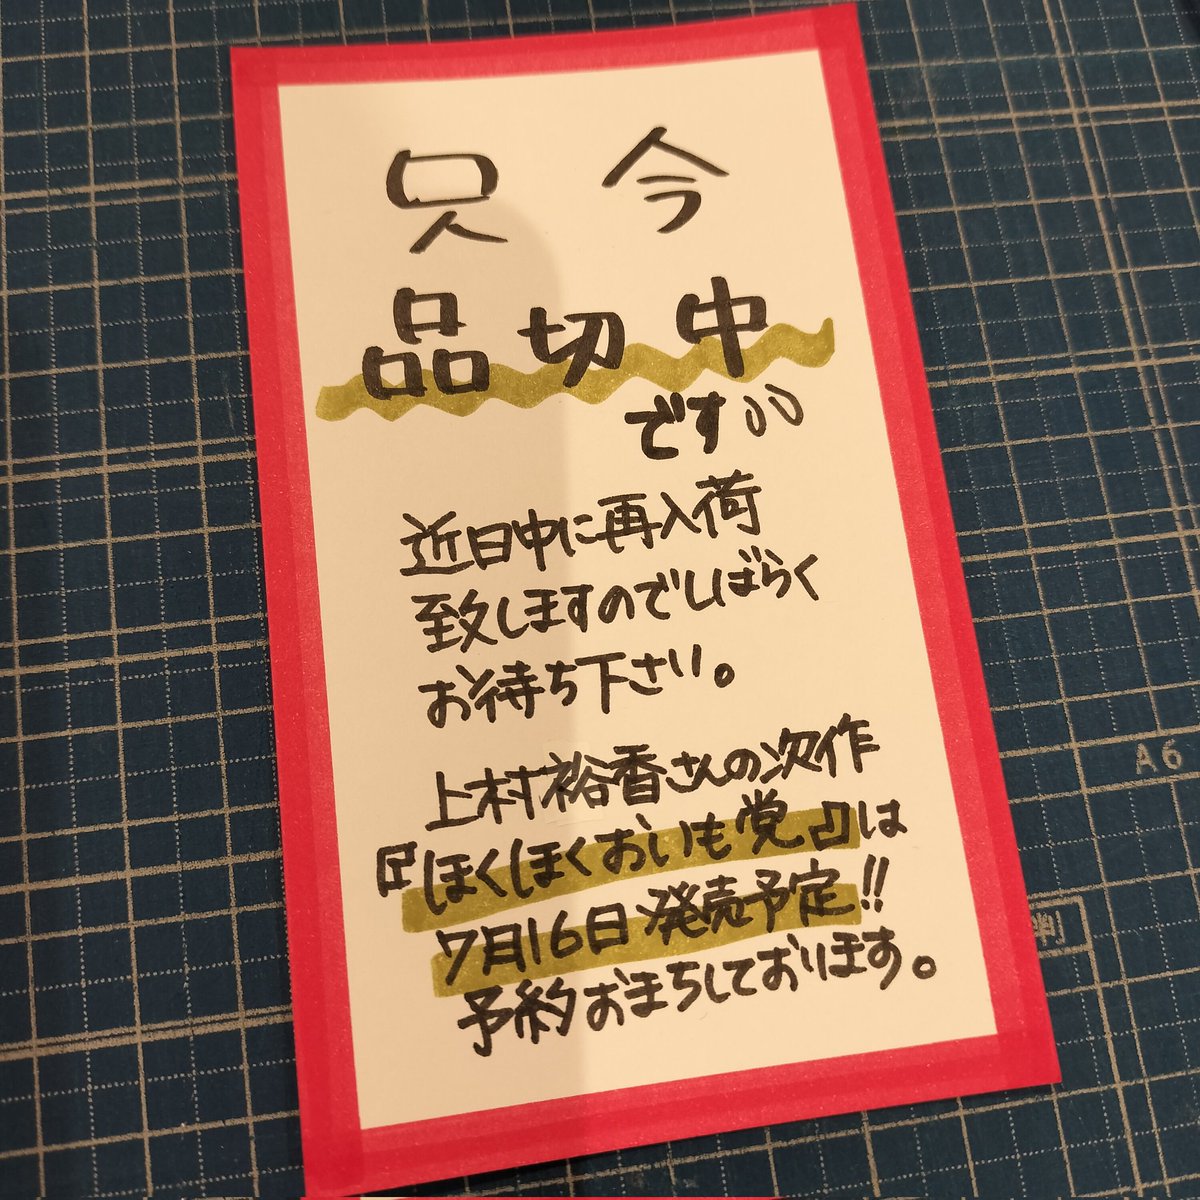 只今
品切中
です
近日中に再入荷
致しますのでしばらく
お待ち下さい。
上村裕香さんの次作
『ほくほくおいも党』は
7月16日発売予定!!
予約おまちしております。
A6
判